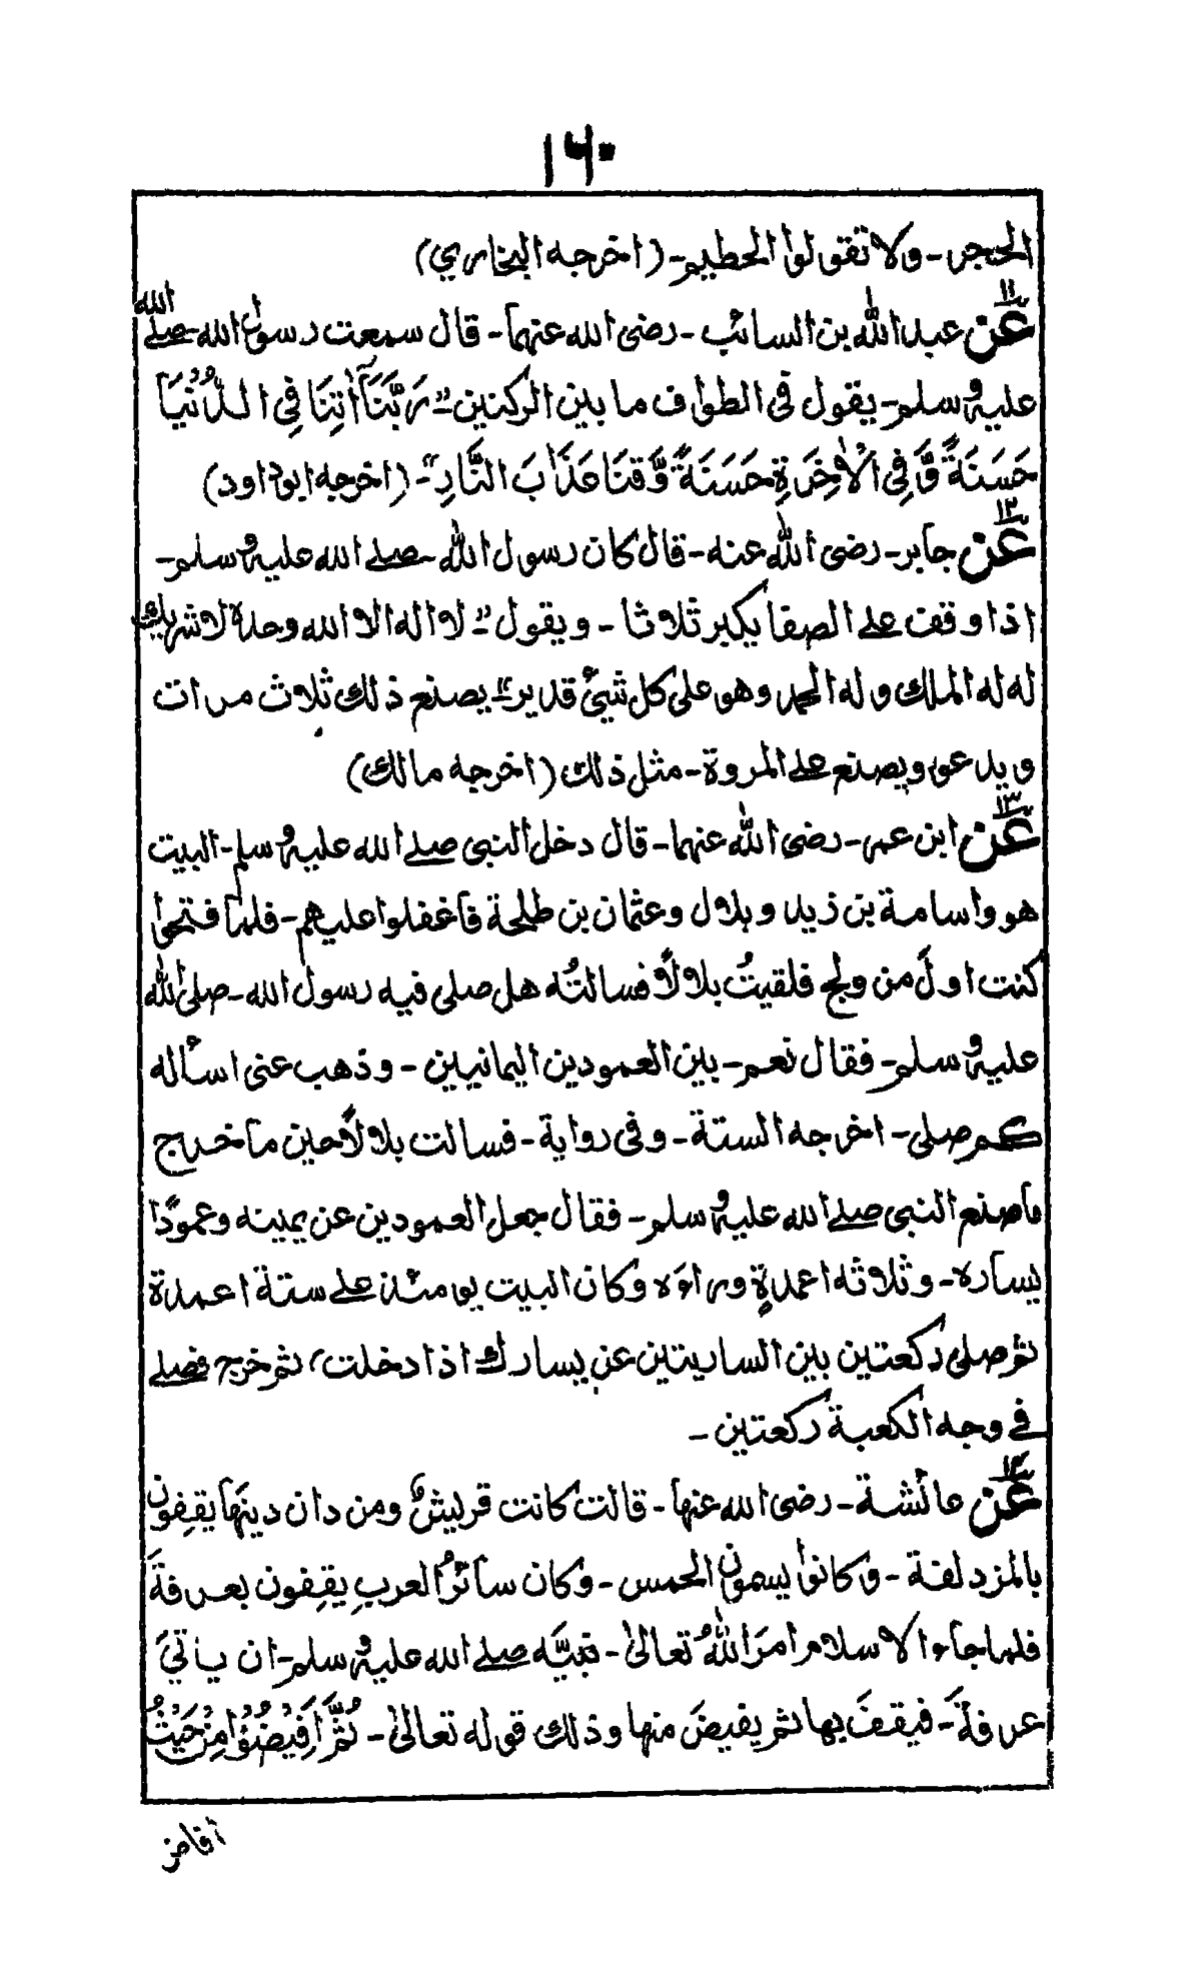 ۱۶۰
الحجر - ولا تقولوا الحطيم - (اخرجه البخاري)
۱۱
عن عبد الله بن السائب - رضى الله عنهما - قال سمعت رسول الله - صلى الله
عليه وسلم - يقول فى الطواف ما بين الركنين - " رَبَّنَآ اٰتِنَا فِى الدُّنْيَا
حَسَنَةً وَّفِى الْاٰخِرَةِ حَسَنَةً وَّقِنَا عَذَابَ النَّارِ " - (اخرجه ابوداود)
۱۲
عن جابر - رضى الله عنه - قال كان رسول الله - صلے الله عليه وسلم -
اذا وقف علے الصفا يكبر ثلاثا - ويقول - " لا اله الا الله وحدة لا شريك
له له الملك وله الحمد وهو على كل شيئ قدير " يصنع ذلك ثلاث مرات
ويدعو ويصنع علے المروة - مثل ذلك (اخرجه مالك)
۱۳
عن ابن عمر - رضى الله عنهما - قال دخل النبى صلے الله عليه وسلم - البيت
هو واسامة بن زيد وبلال وعثمان بن طلحة فاغفلوا عليهم - فلما فتحوا
كنت اولَ من ولج فلقيتُ بلالًا فسالتُه هل صلى فيه رسول الله - صلى الله
عليه وسلم - فقال نعم - بين العمودين اليمانيين - وذهب عنى اسأله
كم صلى - اخرجه الستة - وفى رواية - فسالت بلالًا حين ما خرج
ماصنع النبى صلے الله عليه وسلم - فقال جعل العمودين عن يمينه وعمودًا
يساره - وثلاثه اعمدةٍ وراءه وكان البيت يومئذ علے ستة اعمدة
ثم صلى ركعتين بين الساريتين عن يسارك اذا دخلت، ثم خرج فصلے
فے وجه الكعبة ركعتين -
۱۴
عن عائشة - رضى الله عنها - قالت كانت قريشٌ ومن دان دينَها يقِفون
بالمزدلفة - وكانوا يسمون الحمس - وكان سآئرُ العربِ يقِفون بعرفةَ
فلما جاء الاسلام امرَ اللهُ تعالىٰ - نبيَّه صلے الله عليه وسلم - ان ياتيَ
عرفةَ - فيقفَ بها ثم يفيضَ منها وذلك قوله تعالىٰ - ثُمَّ اَفِيْضُوْا مِنْ حَيْثُ
أفاض